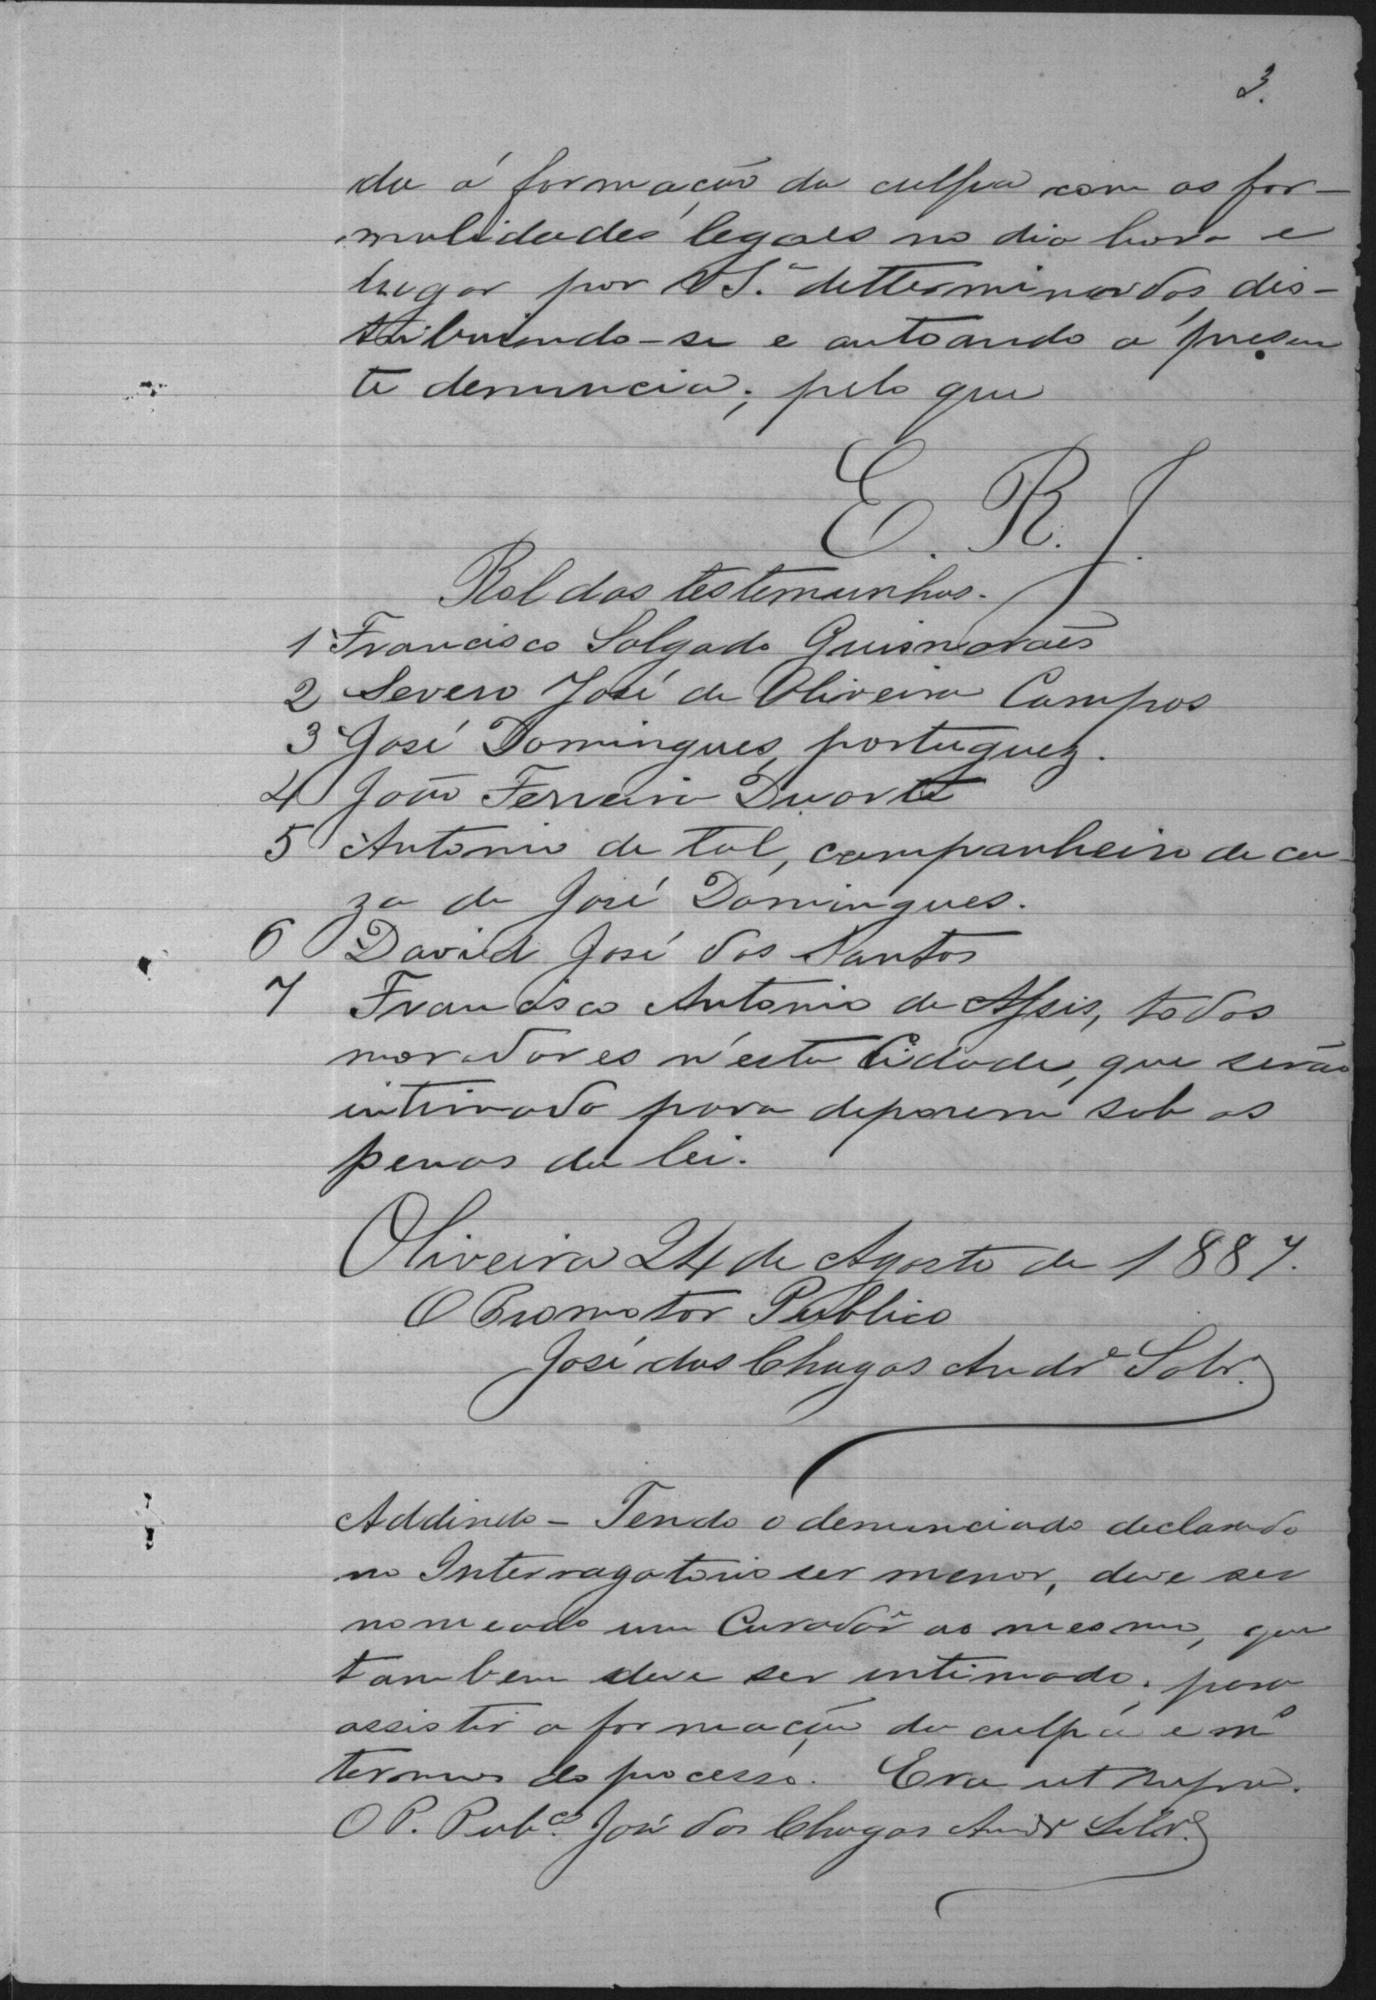 3.
da á formação da culpa com as for-
malidades legaes no dia hora e
lugar por VSª determinados, dis-
tribuindo-se e autoando a presen
te denuncia; pelo que
E. R. J.
Rol das testemunhas.
1 Francisco Salgado Guimarães
2 Severo José de Oliveira Campos
3 José Domingues, portuguez.
4 João Ferreira Duarte
5 Antonio de tal, companheiro de ca-
za de José Domingues.
6 David José dos Santos
7 Francisco Antonio de Assis, todos
moradores n'esta Cidade, que serão
intimado para deporem sob as
penas da lei.
Oliveira 24 de Agosto de 1887.
O Promotor Publico
José das Chagas Andrᵉ Sobrº
Addindo - Tendo o denunciado declarado
no Interrogatorio ser menor, deve ser
nomeado um Curador ao mesmo, que
tambem deve ser intimado, para
assistir a formação da culpa e mº
termos do processo. Era ut supra.
O P. Pubᶜᵒ José das Chagas Andrᵉ Sobrº